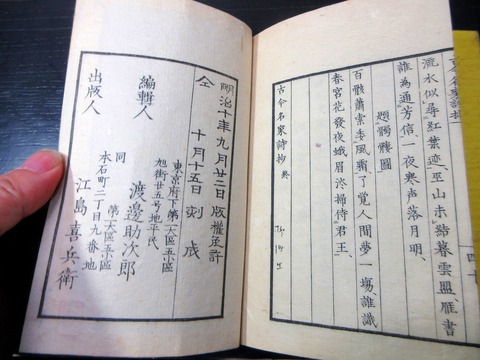 流水似尋紅葉迹巫山未結暮雲盟雁書
誰為通芳信一夜寒声落月明
題髑髏圖
百骸蕭索委風霜了覺人間夢一場誰識
春宮花發夜蛾眉泲掃侍君王
古今名家詩抄 終
明治十年九月廿二日版權免許
仝 十月十五日刻成
東京府下第一大區五小區
旭街五番地平氏
編輯人 渡邊助次郎
同 第一大區五小區
本石町二丁目九番地
出版人 江島喜兵衛